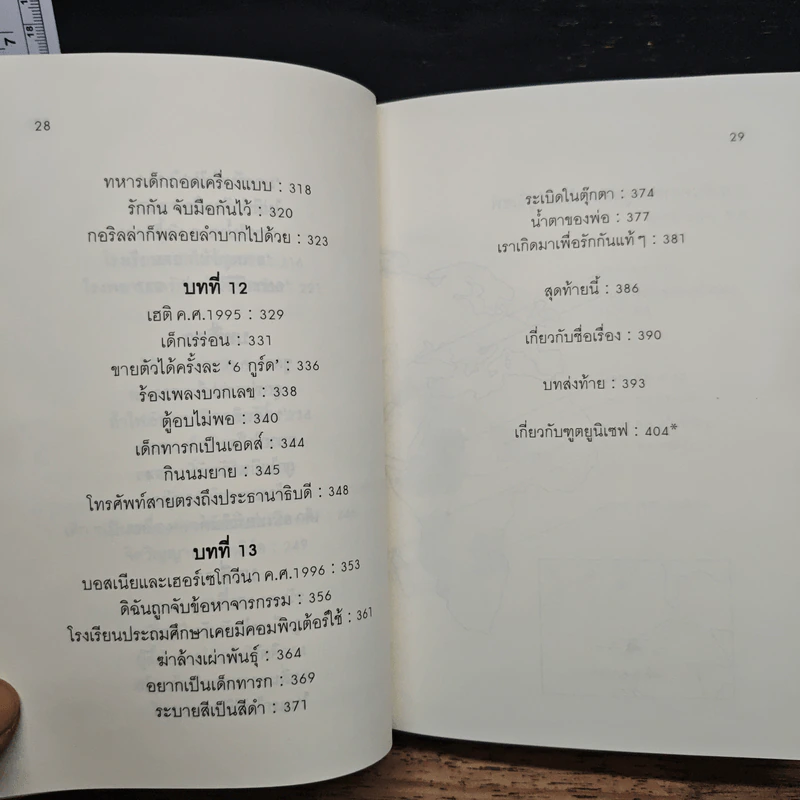 7
18
28
ทหารเด็กถอดเครื่องแบบ : 318
รักกัน จับมือกันไว้ : 320
กอริลล่าก็พลอยลำบากไปด้วย : 323
บทที่ 12
เฮติ ค.ศ.1995 : 329
เด็กเร่ร่อน : 331
ขายตัวได้ครั้งละ ‘6 กูร์ด’ : 336
ร้องเพลงบวกเลข : 338
ตู้อบไม่พอ : 340
เด็กทารกเป็นเอดส์ : 344
กินนมยาย : 345
โทรศัพท์สายตรงถึงประธานาธิบดี : 348
บทที่ 13
บอสเนียและเฮอร์เซโกวีนา ค.ศ.1996 : 353
ดิฉันถูกจับข้อหาจารกรรม : 356
โรงเรียนประถมศึกษาเคยมีคอมพิวเต้อร์ใช้ : 361
ฆ่าล้างเผ่าพันธุ์ : 364
อยากเป็นเด็กทารก : 369
ระบายสีเป็นสีดำ : 371
29
ระเบิดในตุ๊กตา : 374
น้ำตาของพ่อ : 377
เราเกิดมาเพื่อรักกันแท้ๆ : 381
สุดท้ายนี้ : 386
เกี่ยวกับชื่อเรื่อง : 390
บทส่งท้าย : 393
เกี่ยวกับทูตยูนิเซฟ : 404*